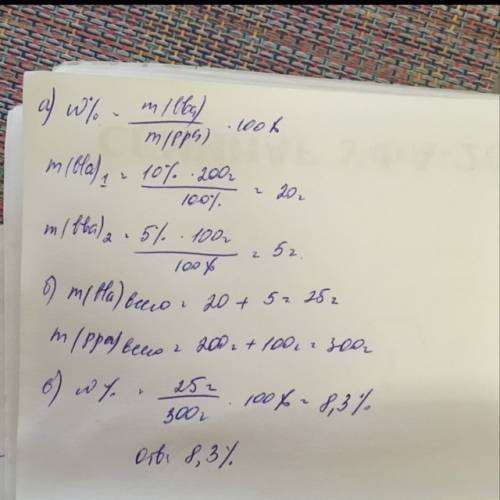 а) w% = m(вва) / m(рра) · 100%
m(вва)1 = 10% · 200г / 100% = 20г
m(вва)2 = 5% · 100г / 100% = 5г.
б) m(вва)всего = 20 + 5 = 25г
m(рра)всего = 200г + 100г = 300г
в) w% = 25г / 300г · 100% = 8,3%
Отв: 8,3%